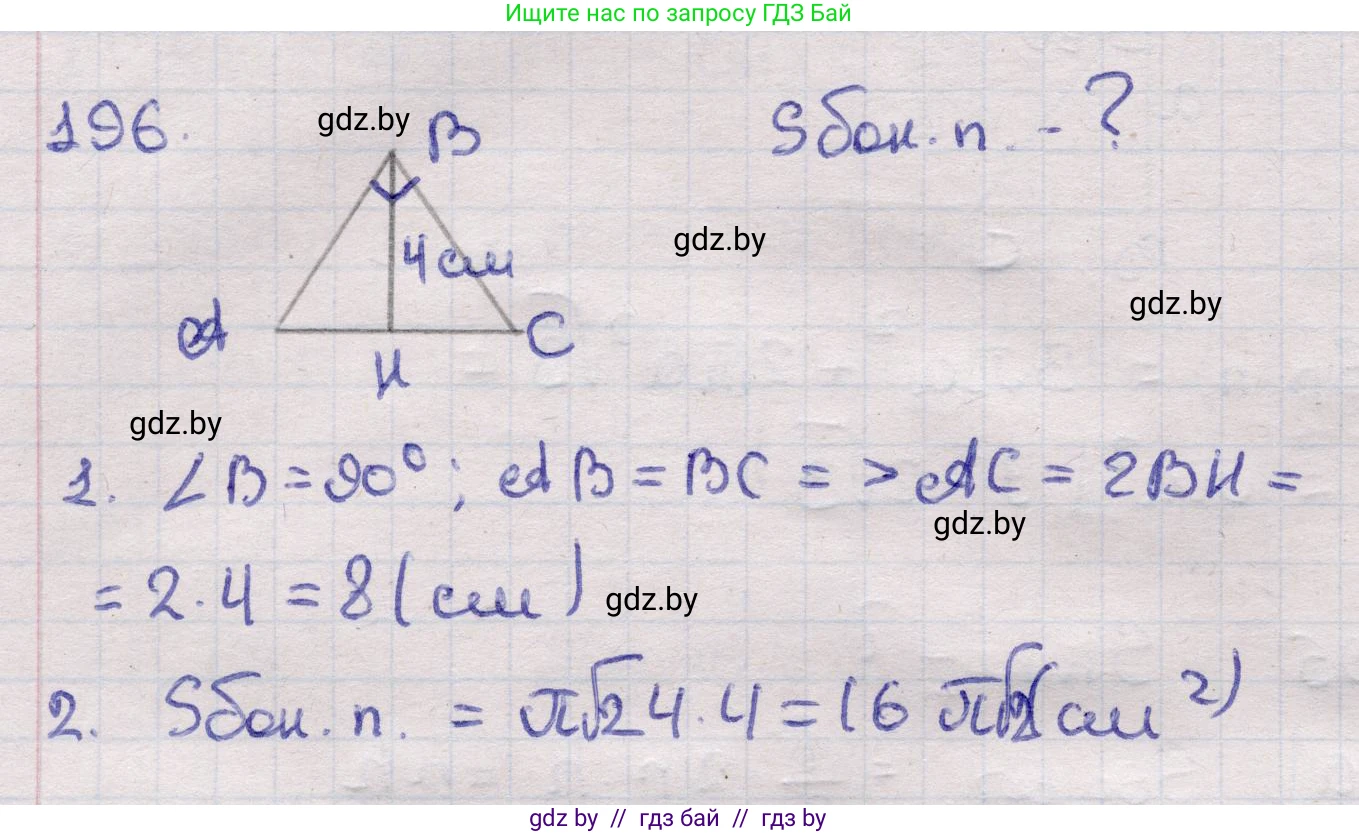 Ищите нас по запросу ГДЗ Бай
196.
gdz.by
B
Sбок. п. - ?
4 см
gdz.by
gdz.by
A
C
H
gdz.by
1. ∠B = 90°; AB = BC => AC = 2BH =
gdz.by
= 2 · 4 = 8 (см)
gdz.by
2. Sбок. п. = π√2 4 · 4 = 16 π√2 (см²)
gdz.by // гдз бай // гдз by